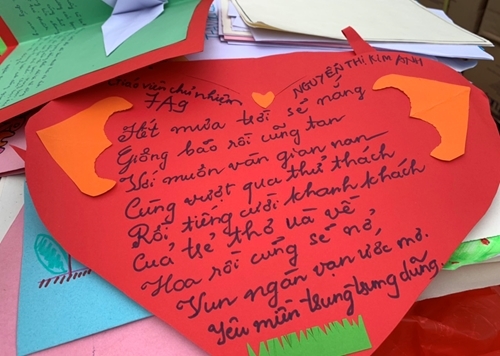 Giáo viên chủ nhiệm
7A9
NGUYỄN THỊ KIM ANH
Hết mưa trời sẽ nắng
Giông bão rồi cũng tan
Với muôn vàn gian nan
Cùng vượt qua thử thách
Rồi tiếng cười khanh khách
Của trẻ thơ ùa về
Hoa rồi cũng sẽ nở,
Vun ngàn vạn ước mơ.
Yêu miền trung trung dũng.